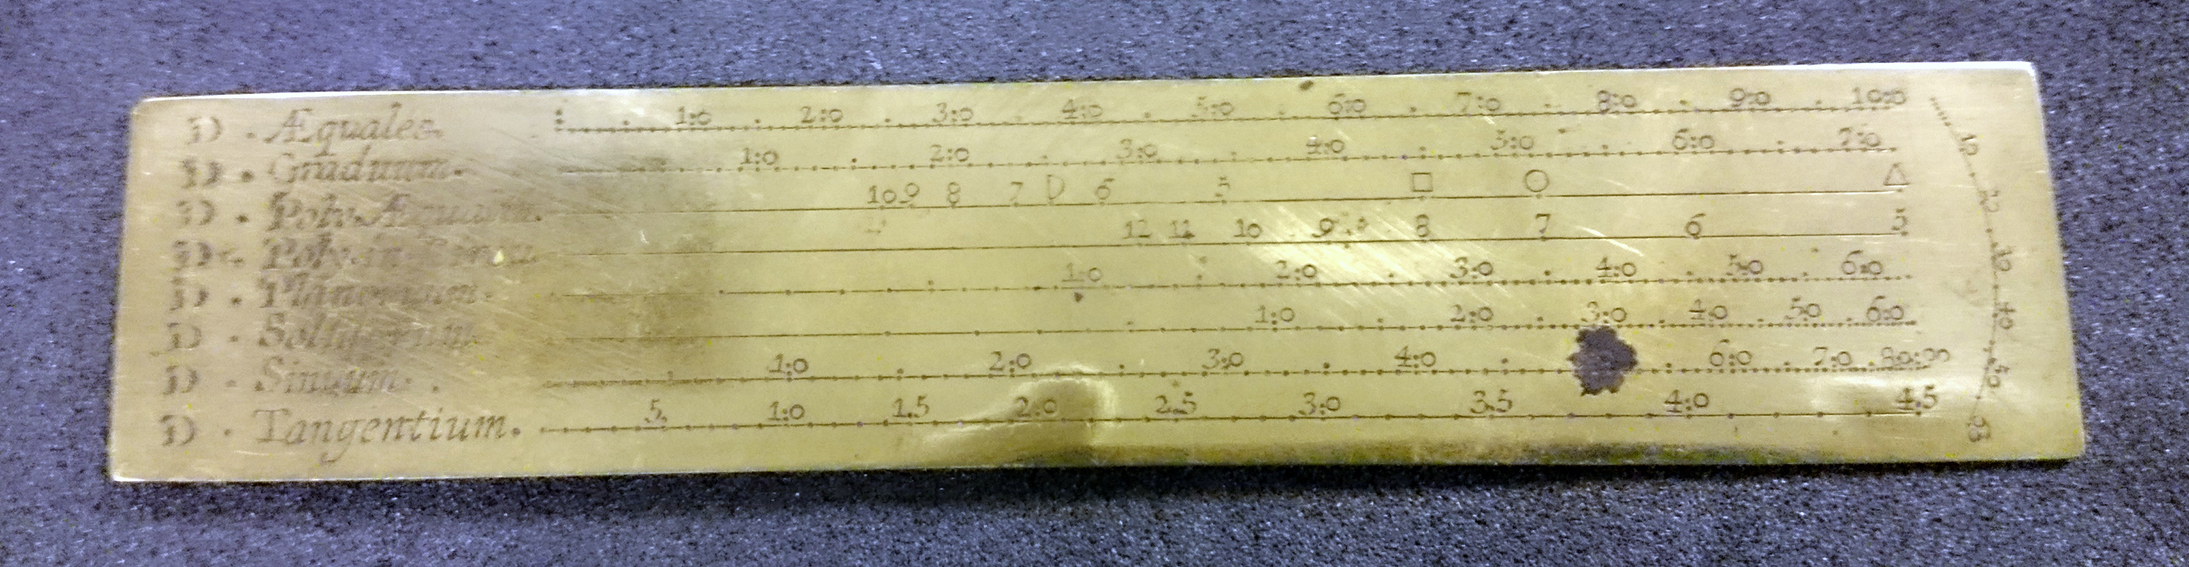 D. Æquales. 1:0 2:0 3:0 4:0 5:0 6:0 7:0 8:0 9:0 10:0
D. Graduum. 1:0 2:0 3:0 4:0 5:0 6:0 7:0
D. Poly. 10 9 8 7 D 6 5 □ ○ △
D. Poly. in 12 11 10 9 8 7 6 5
D. Planorum. 1:0 2:0 3:0 4:0 5:0 6:0
D. 1:0 2:0 3:0 4:0 50 6:0
D. Sinuum. 1:0 2:0 3:0 4:0 6:0 7:0 80:90
D. Tangentium. 5 1:0 1.5 2:0 2.5 3:0 3.5 4:0 4.5